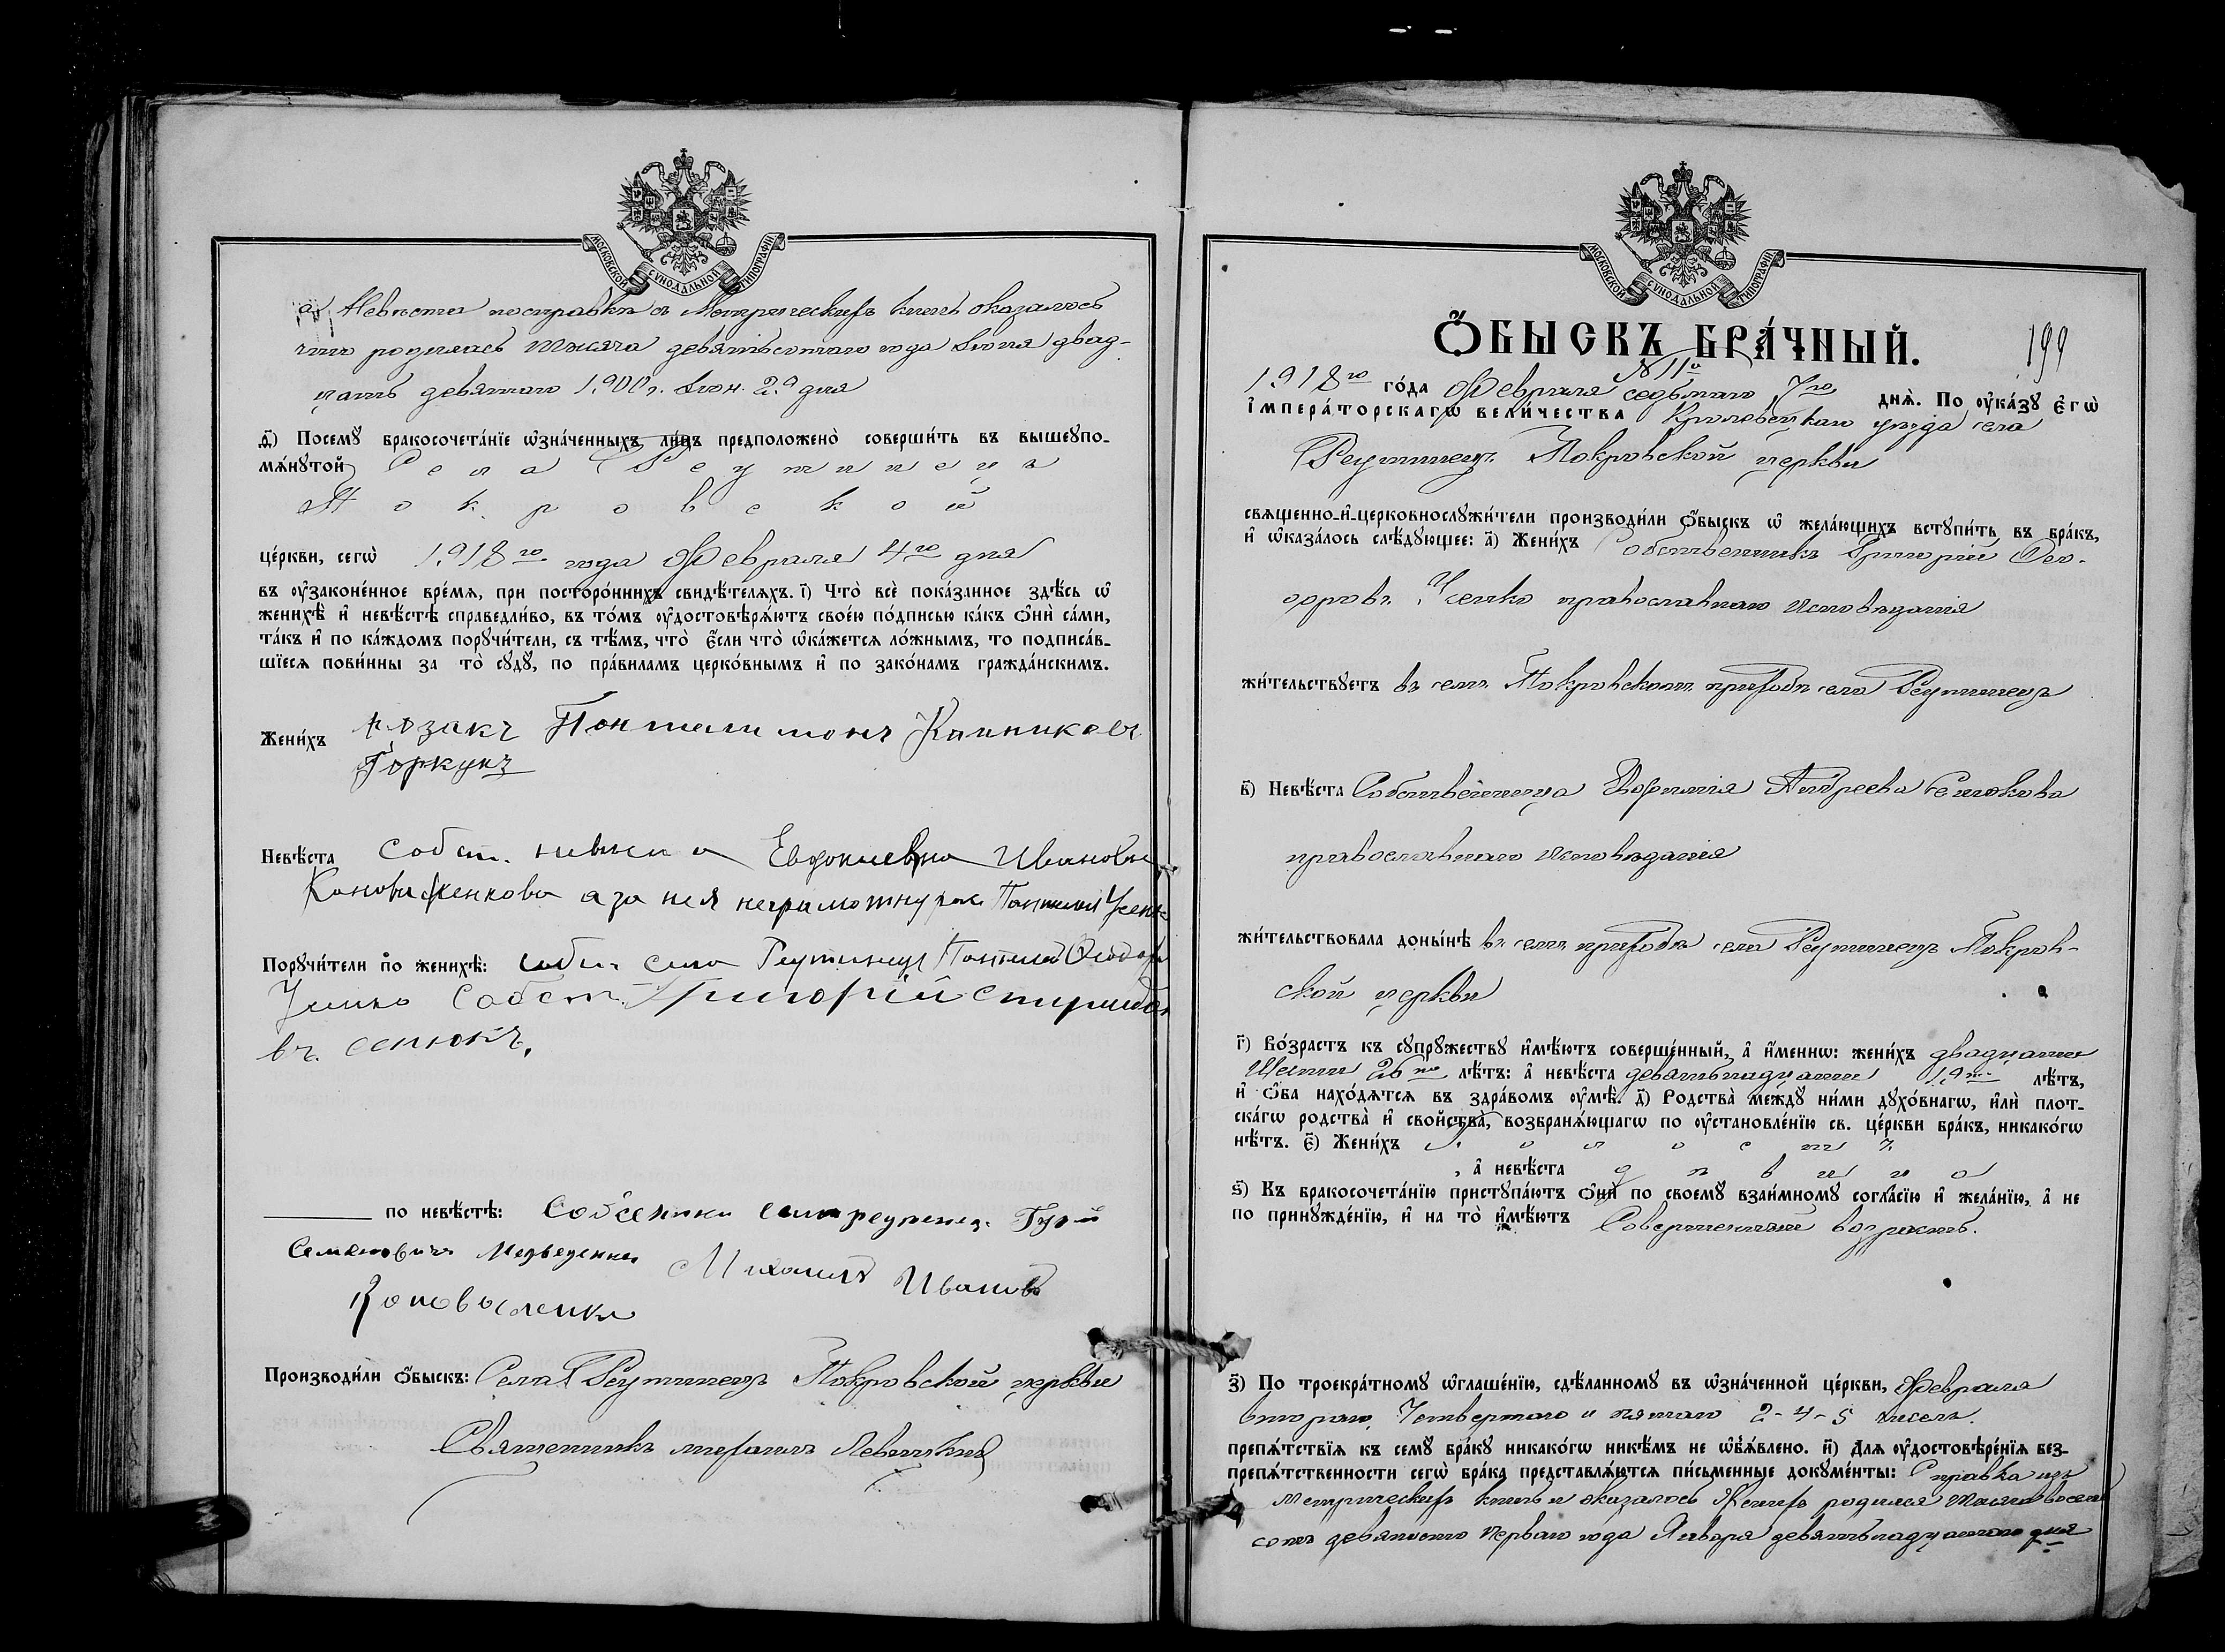 МОСКОВСКОЙ СѴНОДАЛЬНОЙ ТИПОГРАФІИ
а Невѣста по справкѣ съ Метрическихъ книгъ оказалось
что родилась тысяча девятьсотаго года Іюня двад-
цать девятаго 1900 г. Іюн. 29 дня
ѳ҃) Посемꙋ̀ бракосочета́нїе ѡ҆зна́ченныхъ ли́цъ предположено̀ соверши́ть въ вышеꙋпо-
мѧ́нꙋтой Села Реутинецъ
Покровской
це́ркви, сегѡ̀ 1918го года Февраля 4го дня
въ ᲂу҆зако́ненное вре́мѧ, при посторо́ннихъ свидѣ́телѧхъ. і҃) Что̀ всѐ пока́занное здѣ́сь ѡ҆
женихѣ̀ и҆ невѣ́стѣ справедли́во, въ то́мъ ᲂу҆достовѣрѧ́ютъ свое́ю по́дписью ка́къ ѻ҆нѝ са́ми,
та́къ и҆ по ка́ждомъ порꙋчи́тели, съ тѣ́мъ, что̀ є҆́сли что̀ ѡ҆ка́жетсѧ ло́жнымъ, то подписа́в-
шїесѧ пови́нны за то̀ сꙋдꙋ̀, по пра́виламъ церко́внымъ и҆ по зако́намъ гражда́нскимъ.
Жени́хъ козакъ Понтелимонъ
Горкунъ
Невѣ́ста собст. Ивановна
а за нея неграмотну
Порꙋчи́тели по женихѣ̀: собст. села Реутинецъ
Собст. Григорій Спиридо
въ. Сенюкъ.
по невѣ́стѣ: Гурій
Семеновичъ Медведенко Михаилъ Ивановъ
Коновысленко
Производи́ли ѻ҆́быскъ: Села Реутинецъ Покровской церкви
Священникъ Левицкій
МОСКОВСКОЙ СѴНОДАЛЬНОЙ ТИПОГРАФІИ
Ѻ҆́БЫСКЪ БРА́ЧНЫЙ.
199
№ 11й
1918го го́да Февраля седьмаго 7го днѧ̀. По ᲂу҆ка́зꙋ Є҆гѡ̀
І҆мпера́торскагѡ вели́чества Кролевецкаго уѣзда села
Реутинецъ Покровской церкви
свѧщенно-и҆-церковнослꙋжи́тели производи́ли ѻ҆́быскъ ѡ҆ жела́ющихъ встꙋпи́ть въ бра́къ,
и҆ ѡ҆каза́лось слѣ́дꙋющее: а҃) Жени́хъ Собственникъ Григорій Фео-
доровъ Усенко православнаго исповѣданія
жи́тельствꙋетъ въ семъ Покровскомъ приходѣ села Реутинецъ
в҃) Невѣ́ста Собственница Евфимія Андреева Сенюкова
православнаго исповѣданія
жи́тельствовала доны́нѣ въ семъ приходѣ села Реутинецъ Покров-
ской церкви
г҃) Во́зрастъ къ сꙋпрꙋжествꙋ и҆мѣ́ютъ соверше́нный, а҆ и҆́меннѡ: жени́хъ двадцати
Шести 26ти лѣ́тъ: а҆ невѣ́ста девятнадцати 19ти лѣ́тъ,
и҆ ѻ҆́ба нахо́дѧтсѧ въ здра́вомъ ᲂу҆мѣ̀. д҃) Родства̀ междꙋ ни́ми дꙋхо́внагѡ, и҆лѝ плот-
ска́гѡ родства̀ и҆ сво́йства, возбранѧ́ющагѡ по ᲂу҆становле́нїю св. це́ркви бра́къ, никако́гѡ
нѣ́тъ. є҃) Жени́хъ холостъ
, а҆ невѣ́ста дѣвица
ѕ҃) Къ бракосочета́нїю пристꙋпа́ютъ ѻ҆нѝ по своемꙋ̀ взаи́мномꙋ согла́сїю и҆ жела́нїю, а҆ не
по принꙋжде́нїю, и҆ на то̀ и҆мѣ́ютъ Совершенный возрастъ.
з҃) По троекра́тномꙋ ѡ҆глаше́нїю, сдѣ́ланномꙋ въ ѡ҆зна́ченной це́ркви, Февраля
второго, Четвертаго и пятаго 2-4-5 чиселъ.
препѧ́тствїѧ къ семꙋ̀ бра́кꙋ никако́гѡ никѣ́мъ не ѡ҆б̾ѧ́влено. и҃) Для ᲂу҆достовѣре́нїѧ без-
препѧ́тственности сегѡ̀ бра́ка представлѧ́ютсѧ пи́сьменные докꙋме́нты: Справка изъ
Метрическихъ книгъ и оказалось Женихъ родился тысяча восем
сотъ девяносто перваго года Января девятнадцатаго дня